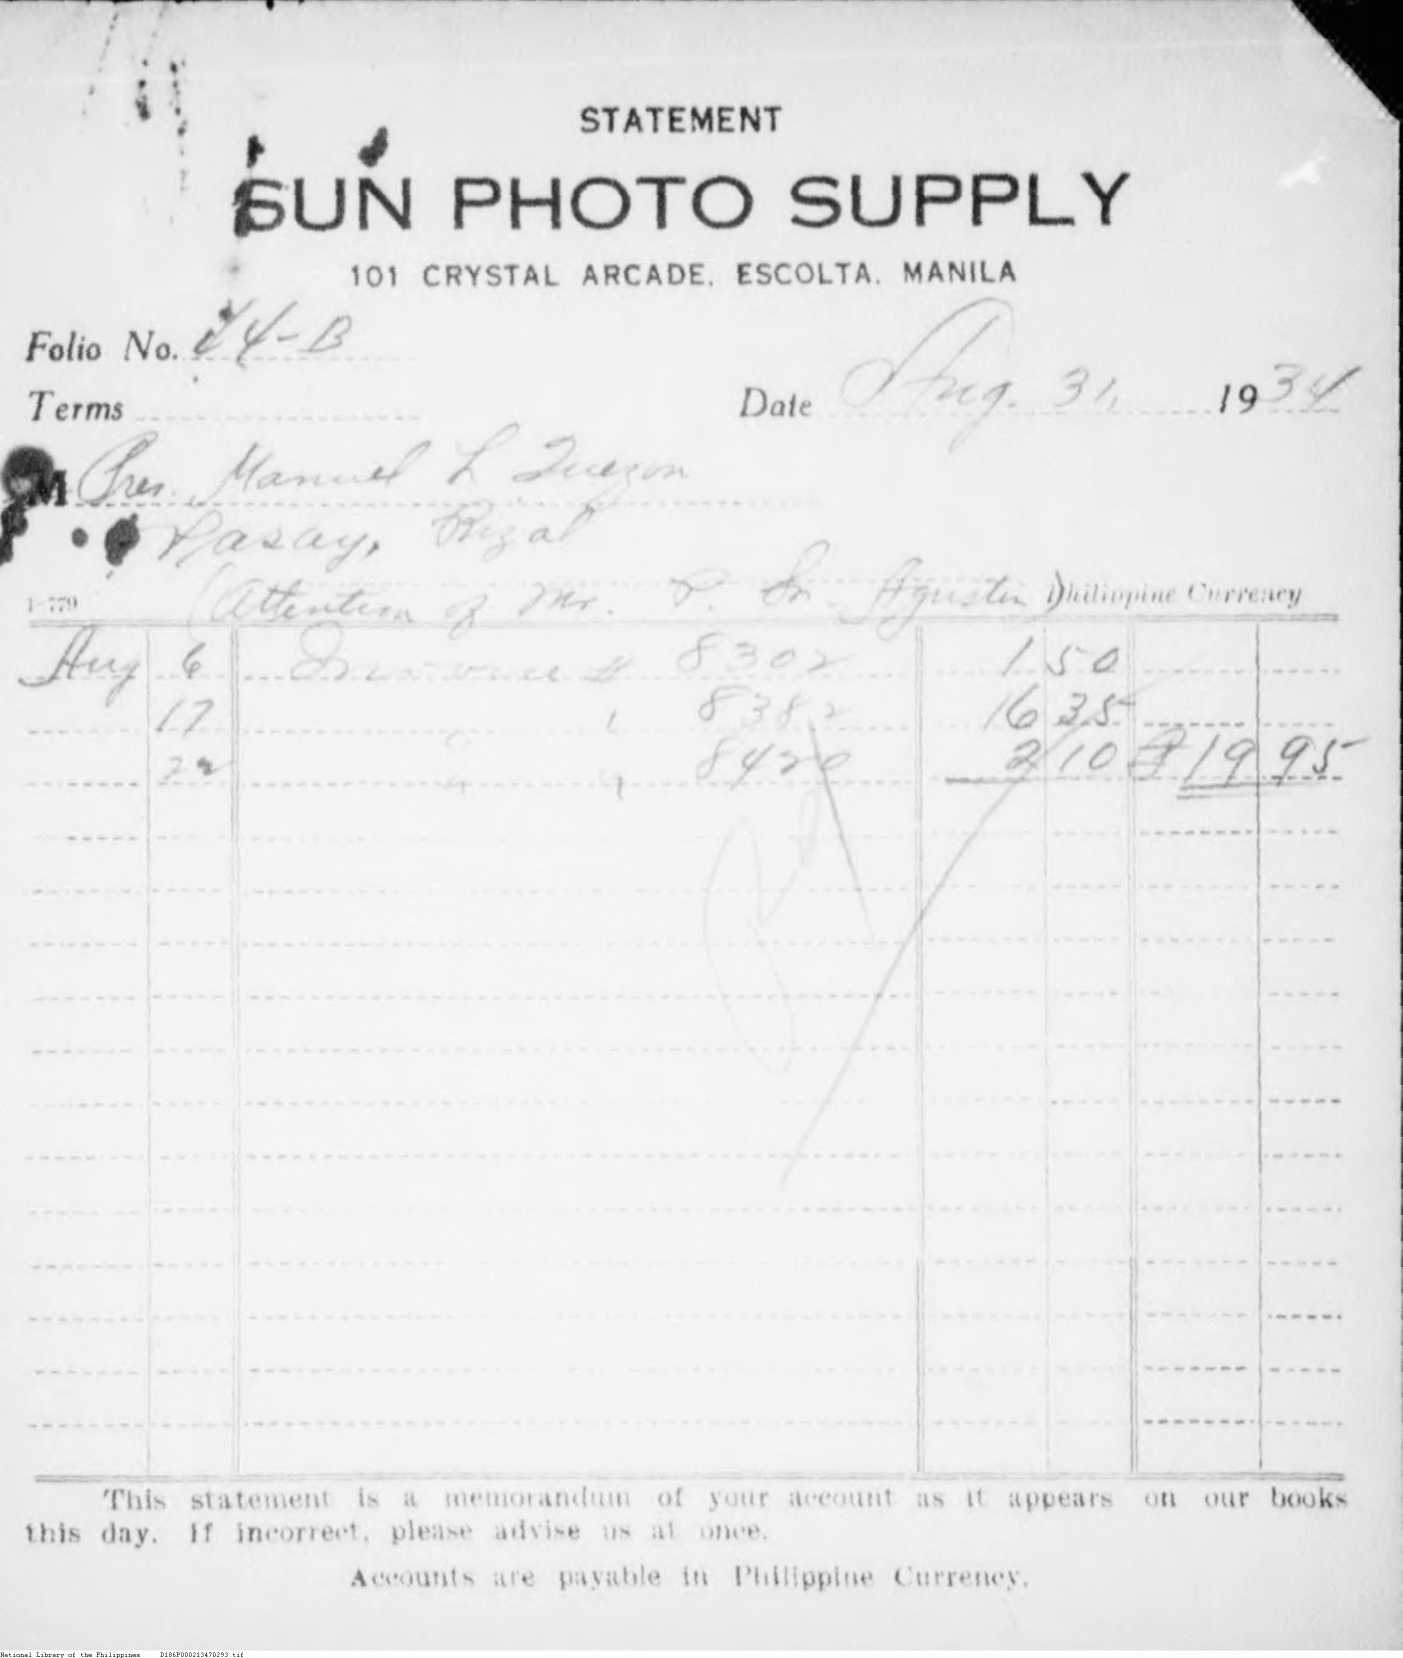 STATEMENT
SUN PHOTO SUPPLY
101 CRYSTAL ARCADE, ESCOLTA, MANILA
Folio No. 44-B
Terms
Date Aug. 31, 1934
M Pres. Manuel L Quezon
Pasay, Rizal
1-779 (Attention of Mr. P. Sn. Agustin) Philippine Currency
Aug 6 Invoice # 8302 1 50
17 " " 8382 16 35
22 " " 8420 2 10 ₱ 19 95
This statement is a memorandum of your account as it appears on our books
this day. If incorrect, please advise us at once.
Accounts are payable in Philippine Currency.
National Library of the Philippines D186P000213470293.tif